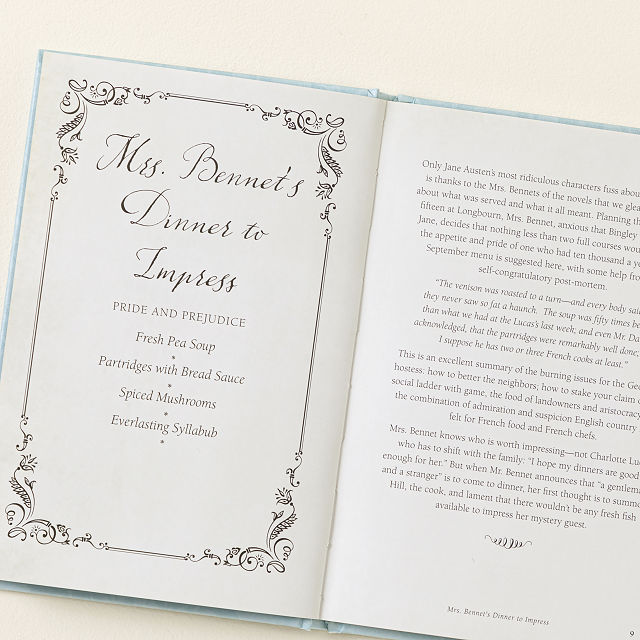 Mrs. Bennet's
Dinner to
Impress
PRIDE AND PREJUDICE
Fresh Pea Soup
*
Partridges with Bread Sauce
*
Spiced Mushrooms
*
Everlasting Syllabub
*
Only Jane Austen's most ridiculous characters fuss about
is thanks to the Mrs. Bennets of the novels that we
about what was served and what it all meant. Planning
fifteen at Longbourn, Mrs. Bennet, anxious that Bingley
Jane, decides that nothing less than two full courses
the appetite and pride of one who had ten thousand a
September menu is suggested here, with some help
self-congratulatory post-mortem.
"The venison was roasted to a turn—and every body
they never saw so fat a haunch. The soup was fifty times
than what we had at the Lucas's last week; and even Mr.
acknowledged, that the partridges were remarkably well done;
I suppose he has two or three French cooks at least."
This is an excellent summary of the burning issues for the
hostess: how to better the neighbors; how to stake your claim
social ladder with game, the food of landowners and aristocracy
the combination of admiration and suspicion English country
felt for French food and French chefs.
Mrs. Bennet knows who is worth impressing—not Charlotte
who has to shift with the family: "I hope my dinners are good
enough for her." But when Mr. Bennet announces that "a
and a stranger" is to come to dinner, her first thought is to
Hill, the cook, and lament that there wouldn't be any fresh fish
available to impress her mystery guest.
Mrs. Bennet's Dinner to Impress
9